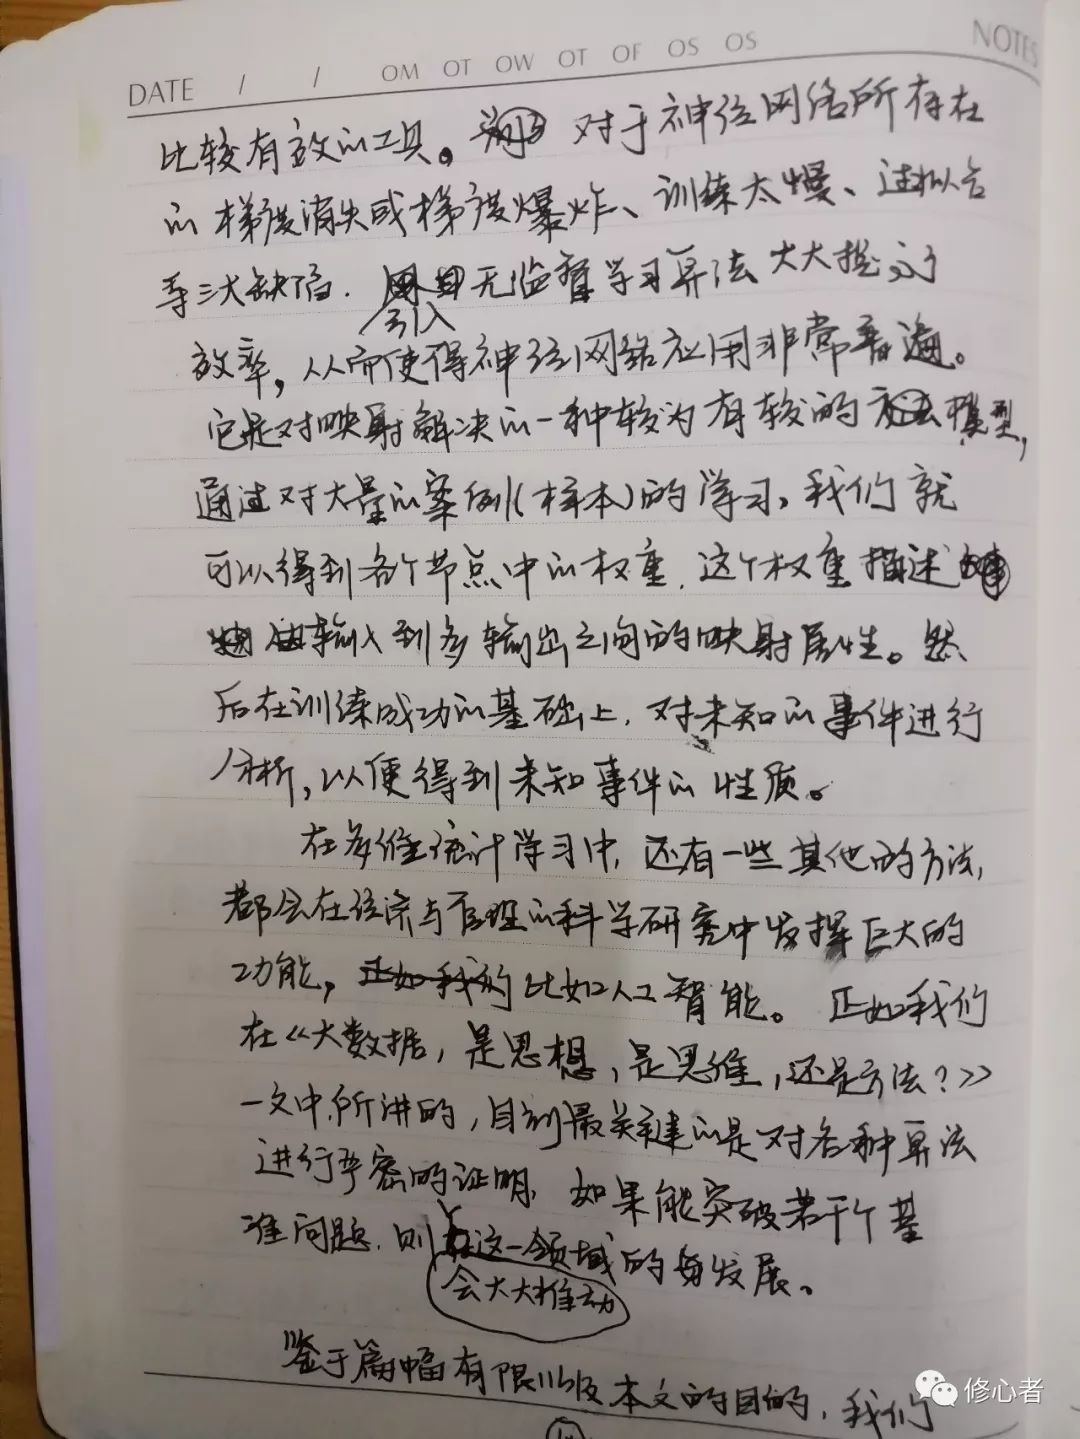 DATE / / OM OT OW OT OF OS OS NOTES
比较有效的工具。对于神经网络所存在
的梯度消失或梯度爆炸、训练太慢、过拟合
等三大缺陷.引入无监督学习算法大大提高了
效率,从而使得神经网络应用非常普遍。
它是对映射解决的一种较为有较的模型,
通过对大量的案例(样本)的学习,我们就
可以得到各个节点中的权重.这个权重描述
输入到多输出之间的映射属性。然
后在训练成功的基础上.对未知的事件进行
分析,以便得到未知事件的性质。
在多维统计学习中,还有一些其他的方法,
都会在经济与管理的科学研究中发挥巨大的
功能,比如人工智能。正如我们
在《大数据,是思想,是思维,还是方法?》
一文中所讲的,目前最关键的是对各种算法
进行严密的证明.如果能突破若干个基
准问题.则会大大推动这一领域的发展。
鉴于篇幅有限以及本文的目的,我们
修心者